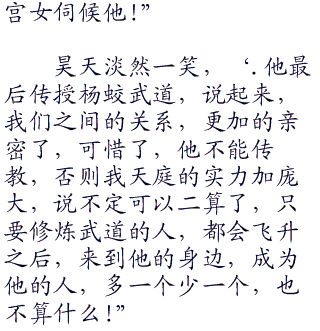 宫女伺候他！”
昊天淡然一笑，‘.他最
后传授杨蛟武道，说起来，
我们之间的关系，更加的亲
密了，可惜了，他不能传
教，否则我天庭的实力加庞
大，说不定可以二算了，只
要修炼武道的人，都会飞升
之后，来到他的身边，成为
他的人，多一个少一个，也
不算什么！”